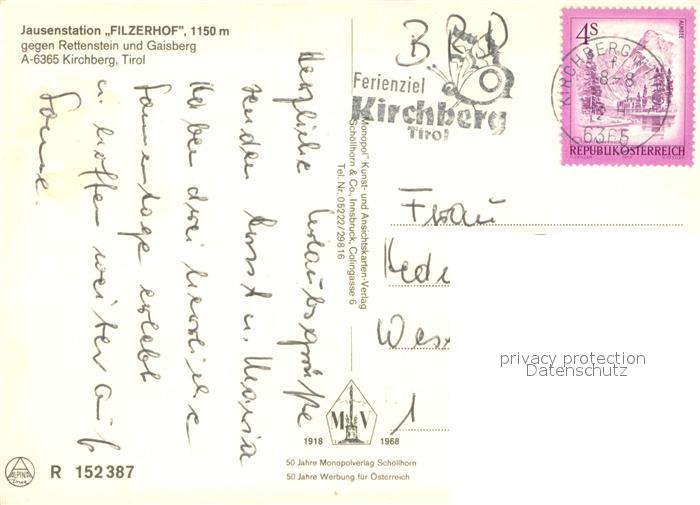 Jausenstation „FILZERHOF", 1150 m
gegen Rettenstein und Gaisberg
A-6365 Kirchberg, Tirol
Herzliche Urlaubsgrüße
senden Horst u. Maria
Haben drei herrliche
Sonnentage erlebt
u. hoffen weiter auf
Sonne.
"Monopol" Kunst- und Ansichtskarten-Verlag
Schöllhorn & Co., Innsbruck, Colingasse 6
Tel. Nr. 05222/29816
BRD
Ferienziel
Kirchberg
Tirol
KIRCHBERG
8-8
6365
4S
ALMSEE
REPUBLIK ÖSTERREICH
Frau
Hedi
Wes
1
privacy protection
Datenschutz
M V
1918 1968
50 Jahre Monopolverlag Schöllhorn
50 Jahre Werbung für Österreich
ALPINA
R 152387